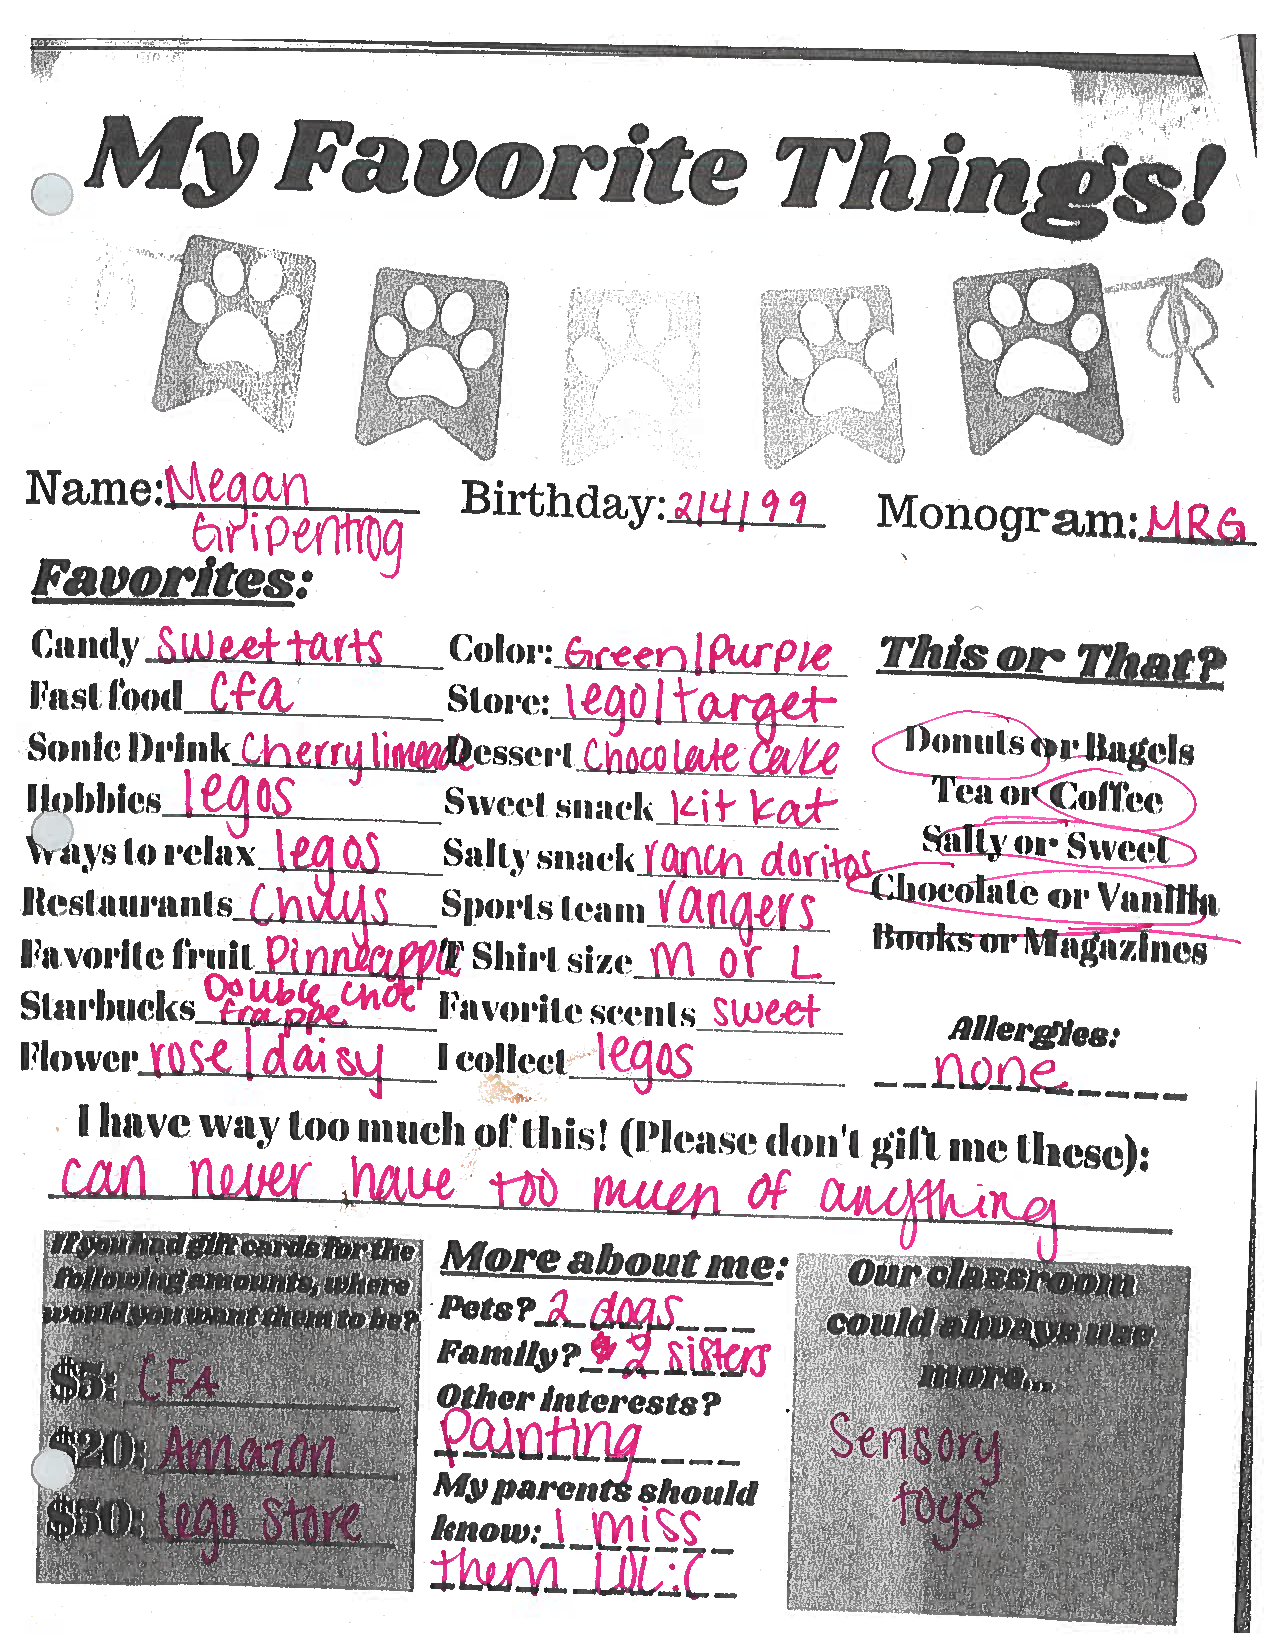 My Favorite Things!
Name: Megan Gripentrog Birthday: 2/4/99 Monogram: MRG
Favorites:
Candy sweettarts
Fast food cfa
Sonic Drink Cherry limeade
Hobbies legos
Ways to relax legos
Restaurants Chuys
Favorite fruit Pinneapple
Starbucks Double choc frappe
Flower rose/daisy
Color: Green/Purple
Store: lego/target
Dessert Chocolate Cake
Sweet snack kit kat
Salty snack ranch doritos
Sports team rangers
T Shirt size M or L
Favorite scents sweet
I collect legos
This or That?
Donuts or Bagels
Tea or Coffee
Salty or Sweet
Chocolate or Vanilla
Books or Magazines
Allergies:
none
I have way too much of this! (Please don't gift me these):
can never have too much of anything
If you had gift cards for the
following amounts, where
would you want them to be?
$5: CFA
$20: Amazon
$50: Lego Store
More about me:
Pets? 2 dogs
Family? 2 sisters
Other interests?
Painting
My parents should
know: I miss
them LOL :(
Our classroom
could always use
more...
Sensory
toys